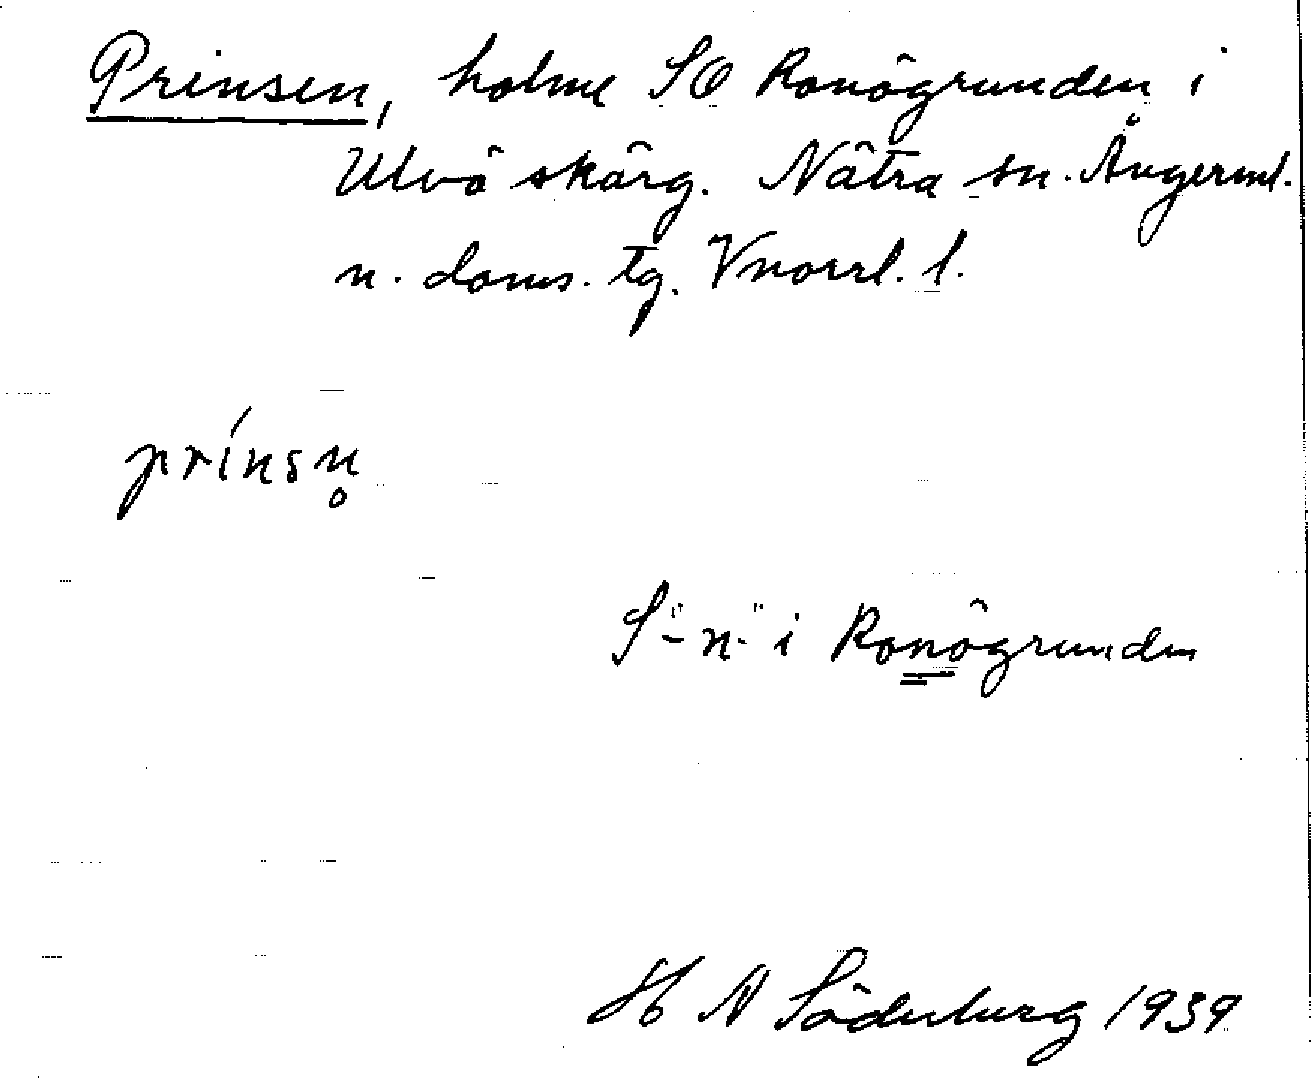 Prinsen, holme SO Ronögrunden i
Ulvö skärg. Nätra sn. Ångerml.
n. doms. tg. Vnorrl. l.
prínsn̥
S "-n-" i Ronögrunden
H N Söderberg 1939